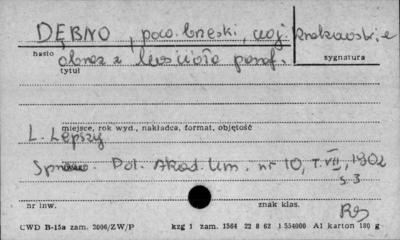 DĘBNO, pow. brzeski, woj. krakowskie
hasło
sygnatura
obraz z kościoła paraf.
tytuł
miejsce, rok wyd., nakładca, format, objętość
L. Lepszy
Spraw. Pol. Akad. Um. nr 10, T. VII, 1902
s. 3
nr inw.
znak klas.
CWD B-15a zam. 2006/ZW/P kzg 1 zam. 1564 22 8 62 1.554000 A1 karton 180 g